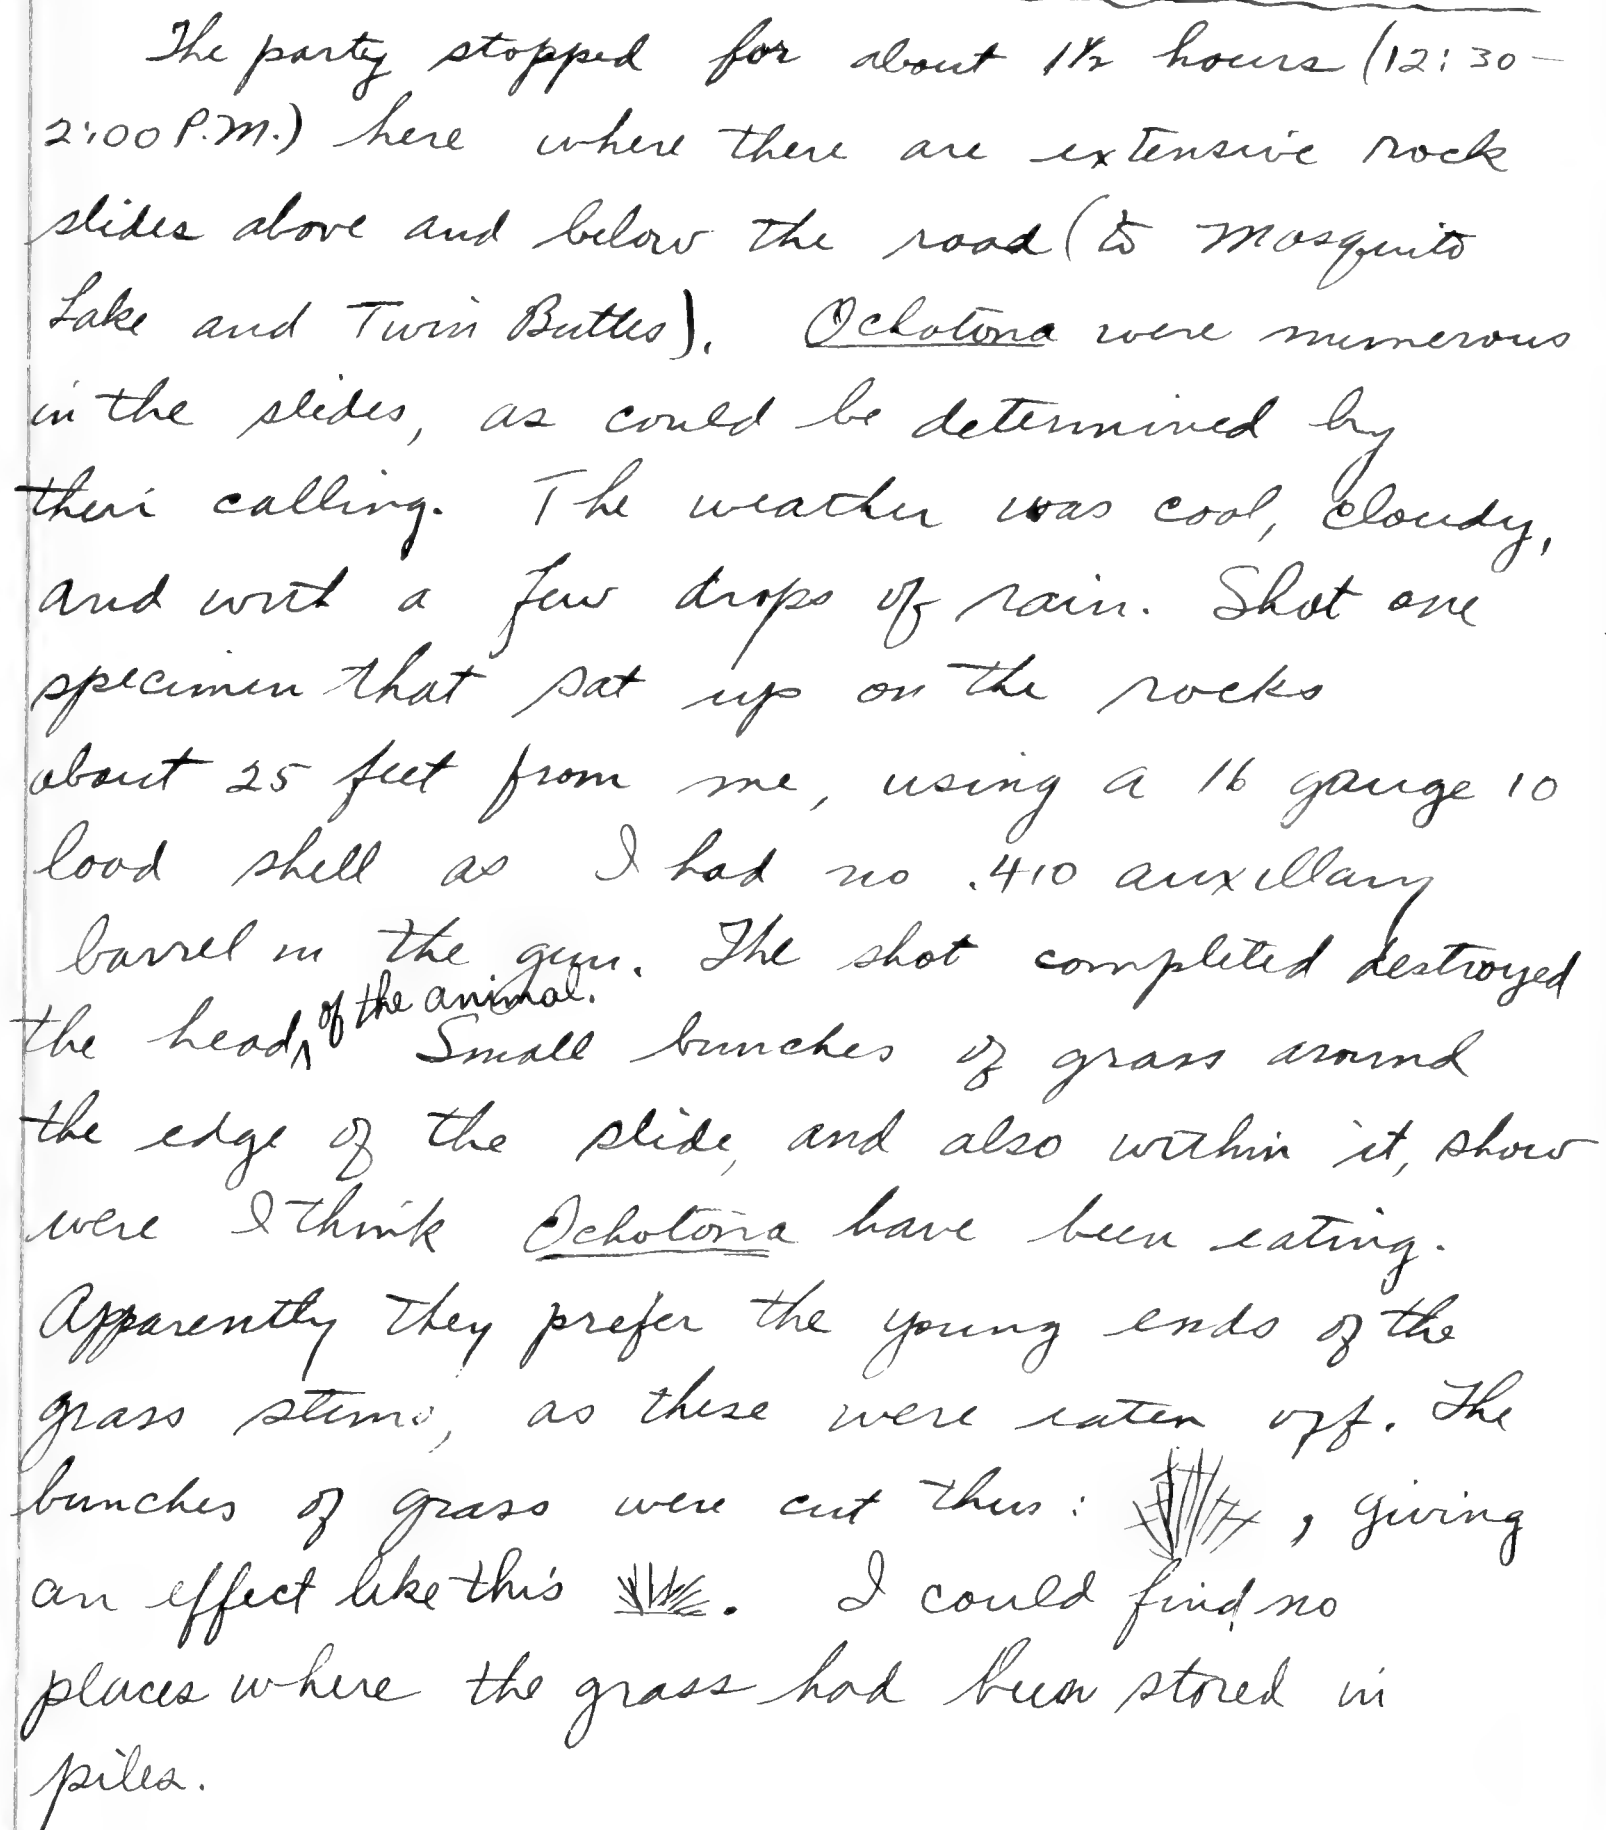 The party stopped for about 1½ hours (12:30–
2:00 P.M.) here where there are extensive rock
slides above and below the road (to Mosquito
Lake and Twin Buttes). Ochotona were numerous
in the slides, as could be determined by
their calling. The weather was cool, cloudy,
and with a few drops of rain. Shot one
specimen that sat up on the rocks
about 25 feet from me, using a 16 gauge 10
load shell as I had no .410 auxillary
barrel in the gun. The shot completed destroyed
the head of the animal. Small bunches of grass around
the edge of the slide, and also within it, show
were I think Ochotona have been eating.
Apparently they prefer the young ends of the
grass stems, as these were eaten off. The
bunches of grass were cut thus: , giving
an effect like this . I could find no
places where the grass had been stored in
piles.